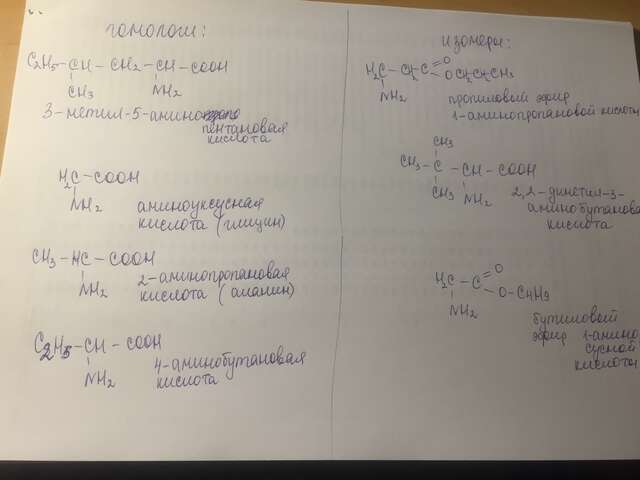 гомологи:
C2H5-CH-CH2-CH-COOH
CH3 NH2
3-метил-5-амино
пентановая
кислота
H2C-COOH
NH2
аминоуксусная
кислота (глицин)
CH3-HC-COOH
NH2
2-аминопропановая
кислота (аланин)
C2H5-CH-COOH
NH2
4-аминобутановая
кислота
изомеры:
H2C-CH2-C=O
OCH2CH2CH3
NH2
пропиловый эфир
1-аминопропановой кислоты
CH3
CH3-C-CH-COOH
CH3 NH2
2,2-диметил-3-
аминобутановая
кислота
H2C-C=O
O-C4H9
NH2
бутиловый
эфир 1-амино
сусной
кислоты